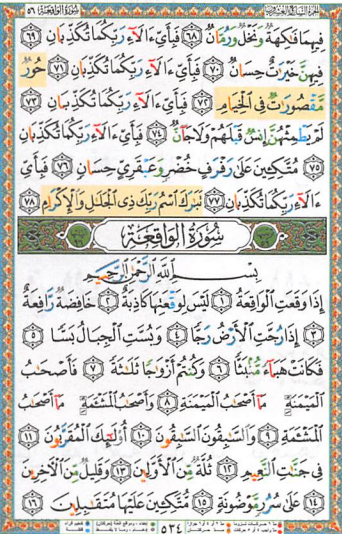 سورة الواقعة ٥٦
فِيهِمَا فَٰكِهَةٌ وَنَخْلٌ وَرُمَّانٌ ٦٨ فَبِأَيِّ ءَالَآءِ رَبِّكُمَا تُكَذِّبَانِ ٦٩
فِيهِنَّ خَيْرَٰتٌ حِسَانٌ ٧٠ فَبِأَيِّ ءَالَآءِ رَبِّكُمَا تُكَذِّبَانِ ٧١ حُورٌ
مَّقْصُورَٰتٌ فِى ٱلْخِيَامِ ٧٢ فَبِأَيِّ ءَالَآءِ رَبِّكُمَا تُكَذِّبَانِ ٧٣
لَمْ يَطْمِثْهُنَّ إِنسٌ قَبْلَهُمْ وَلَا جَآنٌّ ٧٤ فَبِأَيِّ ءَالَآءِ رَبِّكُمَا تُكَذِّبَانِ
٧٥ مُتَّكِـِٔينَ عَلَىٰ رَفْرَفٍ خُضْرٍ وَعَبْقَرِىٍّ حِسَانٍ ٧٦ فَبِأَيِّ
ءَالَآءِ رَبِّكُمَا تُكَذِّبَانِ ٧٧ تَبَٰرَكَ ٱسْمُ رَبِّكَ ذِى ٱلْجَلَٰلِ وَٱلْإِكْرَامِ ٧٨
سُورَةُ الوَاقِعَةِ
بِسْمِ ٱللَّهِ ٱلرَّحْمَٰنِ ٱلرَّحِيمِ
إِذَا وَقَعَتِ ٱلْوَاقِعَةُ ١ لَيْسَ لِوَقْعَتِهَا كَاذِبَةٌ ٢ خَافِضَةٌ رَّافِعَةٌ
٣ إِذَا رُجَّتِ ٱلْأَرْضُ رَجًّا ٤ وَبُسَّتِ ٱلْجِبَالُ بَسًّا ٥
فَكَانَتْ هَبَآءً مُّنۢبَثًّا ٦ وَكُنتُمْ أَزْوَٰجًا ثَلَٰثَةً ٧ فَأَصْحَٰبُ
ٱلْمَيْمَنَةِ مَآ أَصْحَٰبُ ٱلْمَيْمَنَةِ ٨ وَأَصْحَٰبُ ٱلْمَشْـَٔمَةِ مَآ أَصْحَٰبُ
ٱلْمَشْـَٔمَةِ ٩ وَٱلسَّٰبِقُونَ ٱلسَّٰبِقُونَ ١٠ أُو۟لَٰٓئِكَ ٱلْمُقَرَّبُونَ ١١
فِى جَنَّٰتِ ٱلنَّعِيمِ ١٢ ثُلَّةٌ مِّنَ ٱلْأَوَّلِينَ ١٣ وَقَلِيلٌ مِّنَ ٱلْءَاخِرِينَ
١٤ عَلَىٰ سُرُرٍ مَّوْضُونَةٍ ١٥ مُّتَّكِـِٔينَ عَلَيْهَا مُتَقَٰبِلِينَ ١٦
٥٣٤